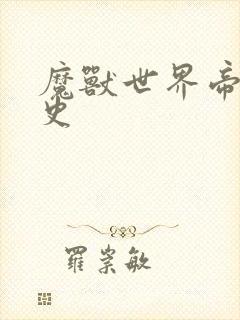 魔獸世界帝
史
羅崇敏